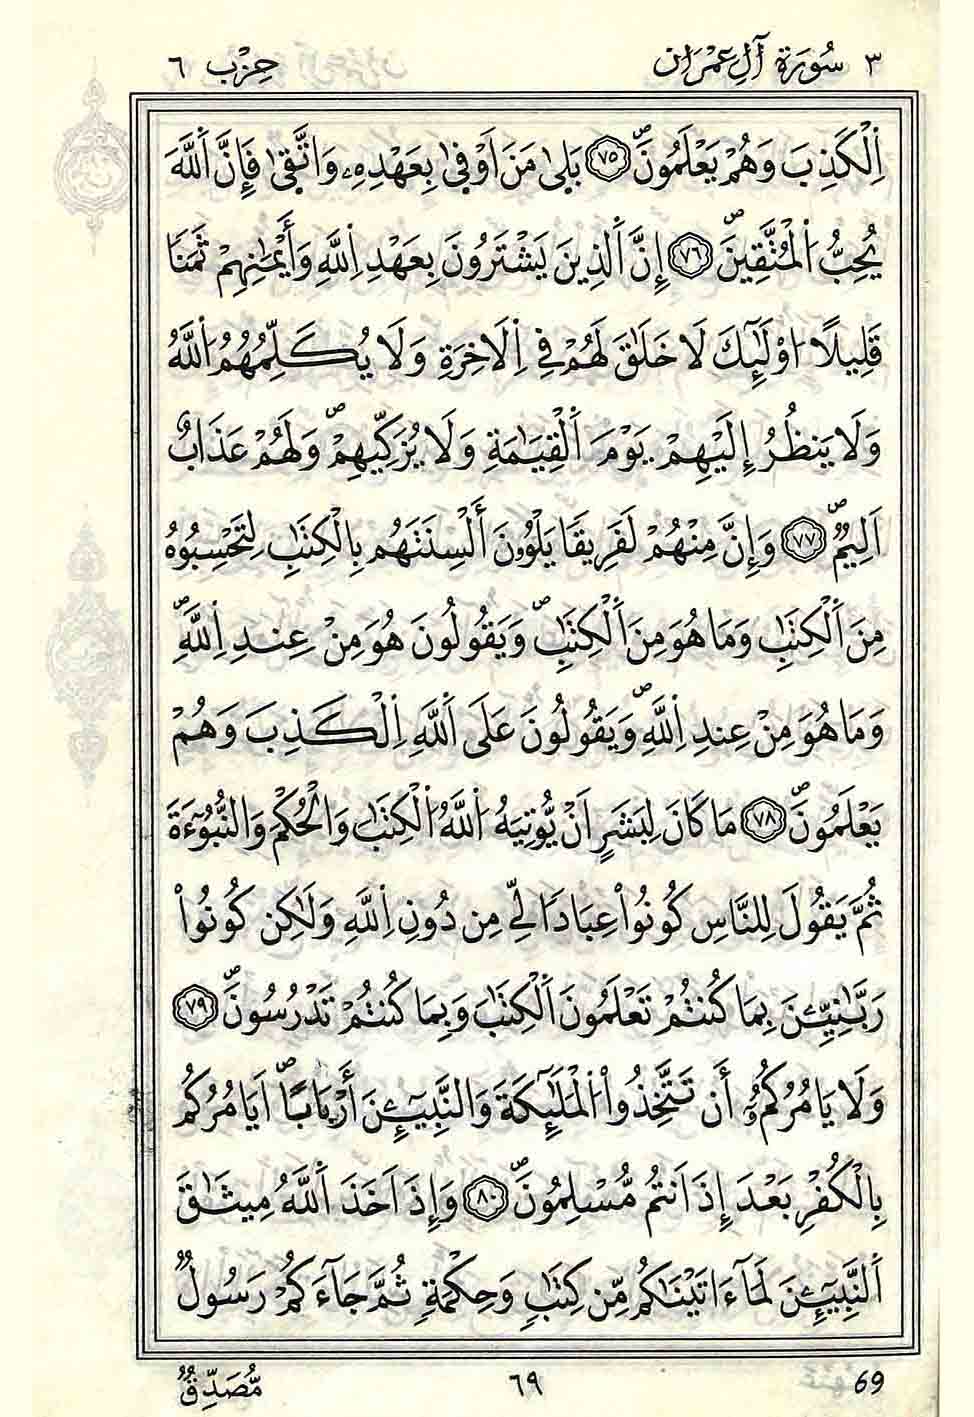 ٣ سُورَةُ آلِ عِمْرَان حِزْب ٦
اِ۬لْكَذِبَ وَهُمْ يَعْلَمُونَۖ ٧٥ بَل۪ىٰ مَنَ اَوْف۪ىٰ بِعَهْدِهِۦ وَاتَّق۪ىٰ فَإِنَّ اَ۬للَّهَ
يُحِبُّ اُ۬لْمُتَّقِينَۖ ٧٦ إِنَّ اَ۬لذِينَ يَشْتَرُونَ بِعَهْدِ اِ۬للَّهِ وَأَيْمَٰنِهِمْ ثَمَناٗ
قَلِيلًا ا۟وْلَٰٓئِكَ لَا خَلَٰقَ لَهُمْ فِے اِ۬لَاخِرَةِ وَلَا يُكَلِّمُهُمُ اُ۬للَّهُ
وَلَا يَنظُرُ إِلَيْهِمْ يَوْمَ اَ۬لْقِيَٰمَةِ وَلَا يُزَكِّيهِمْۖ وَلَهُمْ عَذَابٌ
اَلِيمٞۖ ٧٧ وَإِنَّ مِنْهُمْ لَفَرِيقاٗ يَلْوُۥنَ أَلْسِنَتَهُم بِالْكِتَٰبِ لِتَحْسِبُوهُ
مِنَ اَ۬لْكِتَٰبِ وَمَا هُوَ مِنَ اَ۬لْكِتَٰبِۖ وَيَقُولُونَ هُوَ مِنْ عِندِ اِ۬للَّهِۖ
وَمَا هُوَ مِنْ عِندِ اِ۬للَّهِۖ وَيَقُولُونَ عَلَى اَ۬للَّهِ اِ۬لْكَذِبَ وَهُمْ
يَعْلَمُونَۖ ٧٨ مَا كَانَ لِبَشَرٍ اَنْ يُّوتِيَهُ اُ۬للَّهُ اُ۬لْكِتَٰبَ وَالْحُكْمَ وَالنُّبُوٓءَةَ
ثُمَّ يَقُولَ لِلنَّاسِ كُونُواْ عِبَاداٗ لِّے مِن دُونِ اِ۬للَّهِ وَلَٰكِن كُونُواْ
رَبَّٰنِيِّـۧنَ بِمَا كُنتُمْ تَعْلَمُونَ اَ۬لْكِتَٰبَ وَبِمَا كُنتُمْ تَدْرُسُونَۖ ٧٩
وَلَا يَامُرُكُمُۥٓ أَن تَتَّخِذُواْ اُ۬لْمَلَٰٓئِكَةَ وَالنَّبِيٓـِٕۧنَ أَرْبَاباًۖ اَيَامُرُكُم
بِالْكُفْرِ بَعْدَ إِذَ اَنتُم مُّسْلِمُونَۖ ٨٠ وَإِذَ اَخَذَ اَ۬للَّهُ مِيثَٰقَ
اَ۬لنَّبِيٓـِٕۧنَ لَمَآ ءَاتَيْنَٰكُم مِّن كِتَٰبٖ وَحِكْمَةٖ ثُمَّ جَآءَكُمْ رَسُولٞ
مُّصَدِّقٞ ٦٩ 69